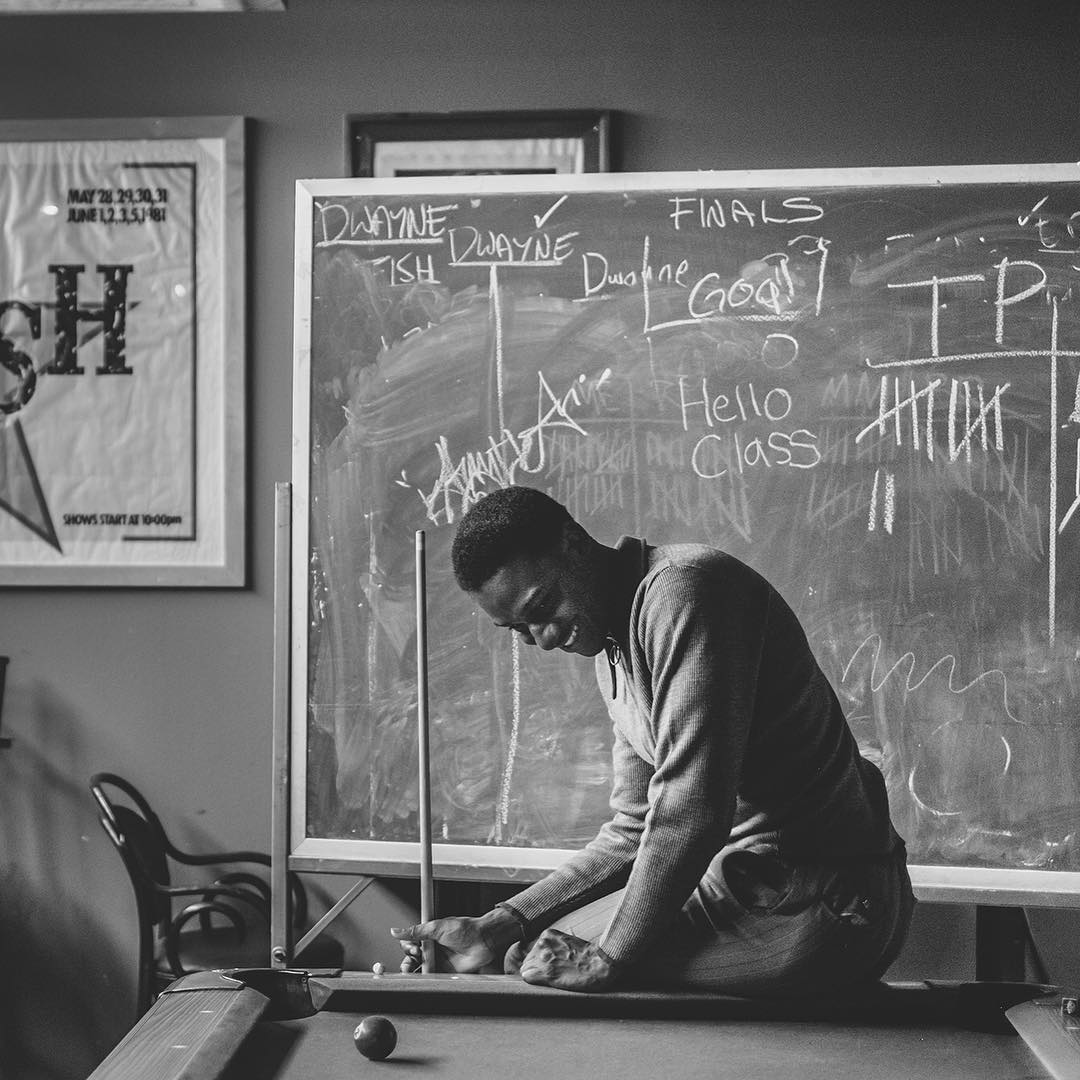 MAY 28,29,30,31
JUNE 1,2,3,5,1981
SH
SHOWS START AT 10:00pm
DWAYNE
FISH
DWAYNE
FINALS
Dwayne
Goal!
Hello
Class
IP